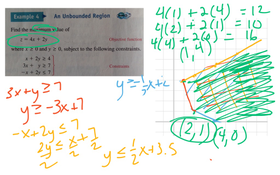 Example 4 An Unbounded Region
Find the minimum value of
z = 4x + 2y Objective function
where x ≥ 0 and y ≥ 0, subject to the following constraints.
x + 2y ≥ 4
3x + y ≥ 7 Constraints
-x + 2y ≤ 7
4(1) + 2(4) = 12
4(2) + 2(1) = 10
4(4) + 2(0) = 16
(1, 4)
3x + y ≥ 7
y ≥ -3x + 7
-x + 2y ≤ 7
2y ≤ x + 7
2 2 2
y ≤ 1/2 x + 3.5
(2, 1) (4, 0)